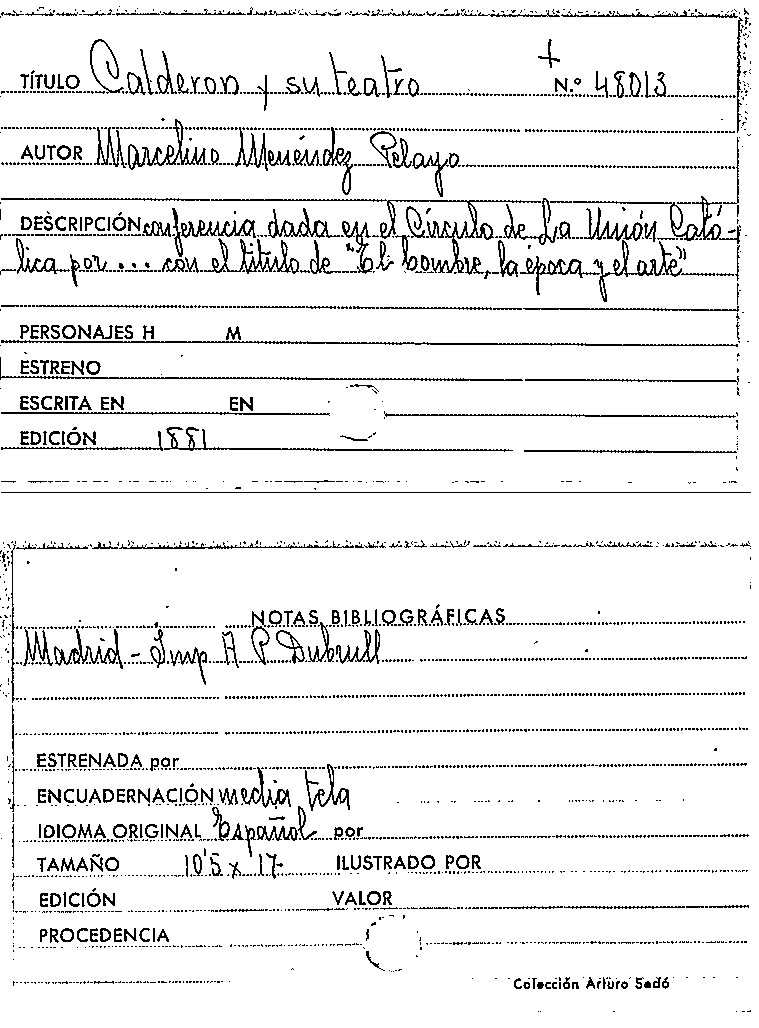 TÍTULO Calderon y su teatro N.º 48013
AUTOR Marcelino Menéndez Pelayo
DESCRIPCIÓN conferencia dada en el Círculo de La Unión Cató-
lica por ... con el titulo de "El hombre, la época y el arte"
PERSONAJES H M
ESTRENO
ESCRITA EN EN
EDICIÓN 1881
NOTAS BIBLIOGRÁFICAS
Madrid - Imp A P Dubrull
ESTRENADA por
ENCUADERNACIÓN media tela
IDIOMA ORIGINAL Español por
TAMAÑO 10'5 x 17 ILUSTRADO POR
EDICIÓN VALOR
PROCEDENCIA
Colección Arturo Sedó